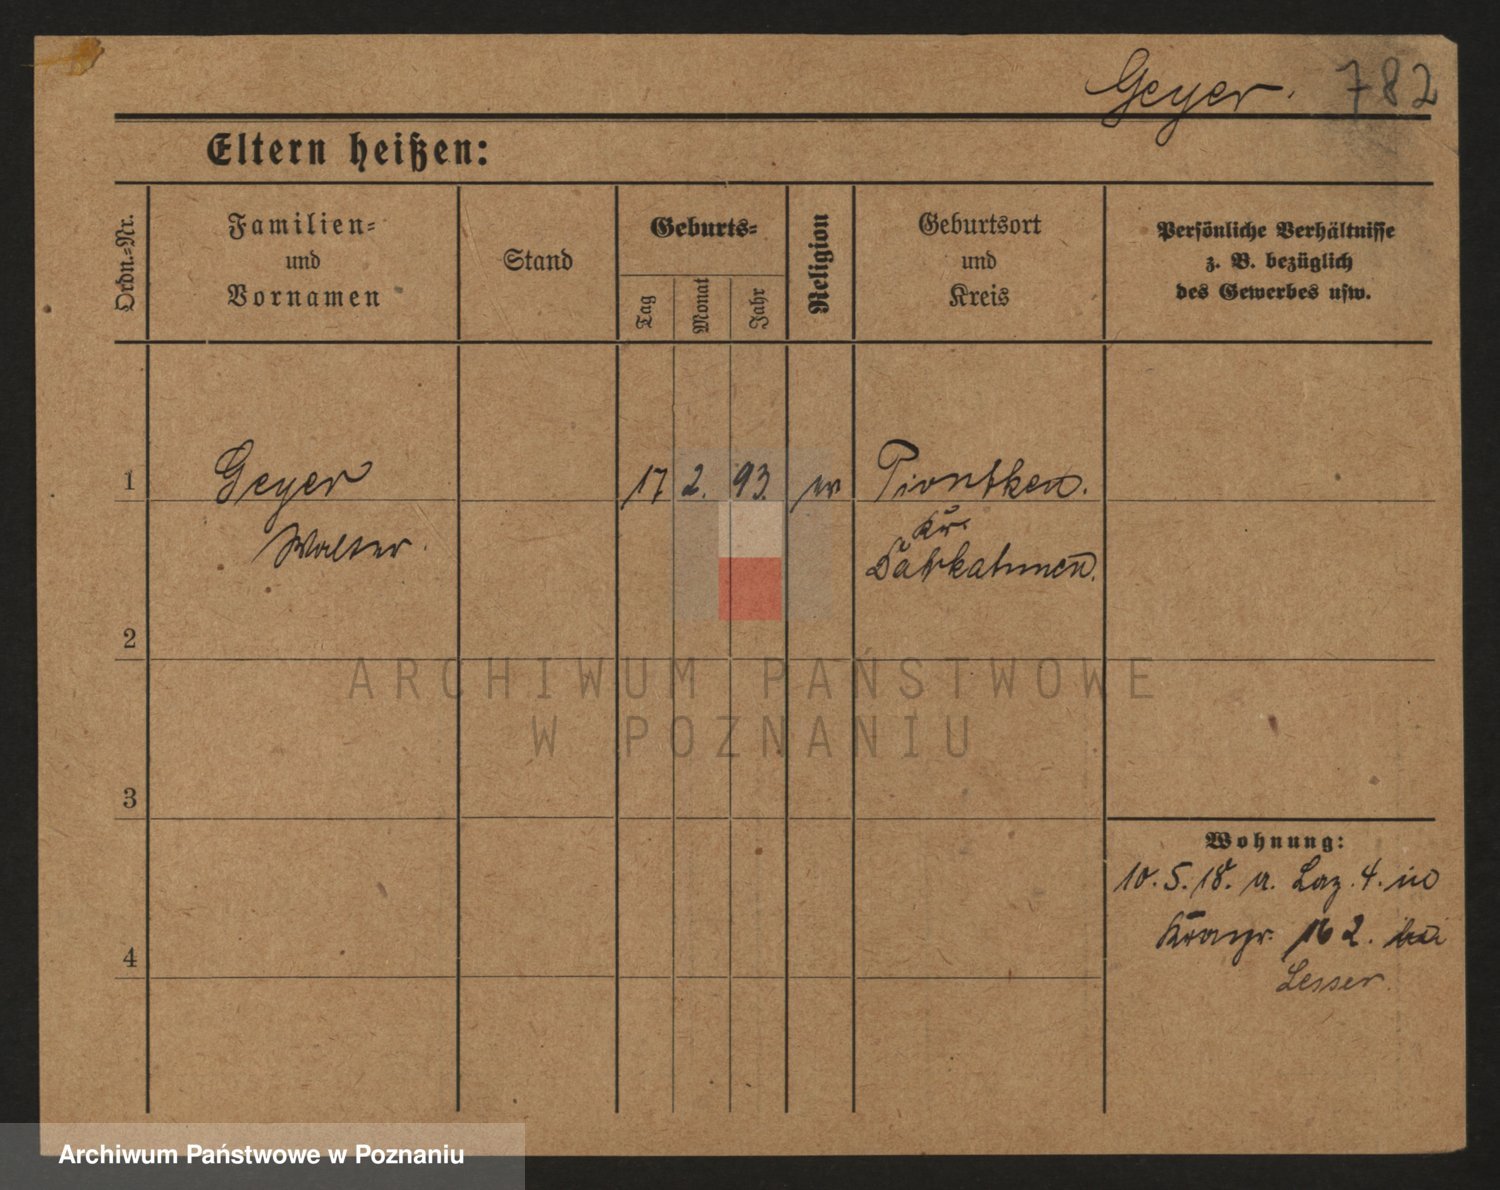 Geyer. 782
Eltern heißen:
Ordn.-Nr.
Familien-
und
Vornamen
Stand
Geburts-
Tag
Monat
Jahr
Religion
Geburtsort
und
Kreis
Persönliche Verhältnisse
z. B. bezüglich
des Gewerbes usw.
1 Geyer 17 2. 93. Piontken.
Walter. Kr.
Darkehmen.
2
3
4
Wohnung:
10. 5. 18. a. Laz. 4. in
16 2. bei
Lesser.
ARCHIWUM PAŃSTWOWE
W POZNANIU
Archiwum Państwowe w Poznaniu